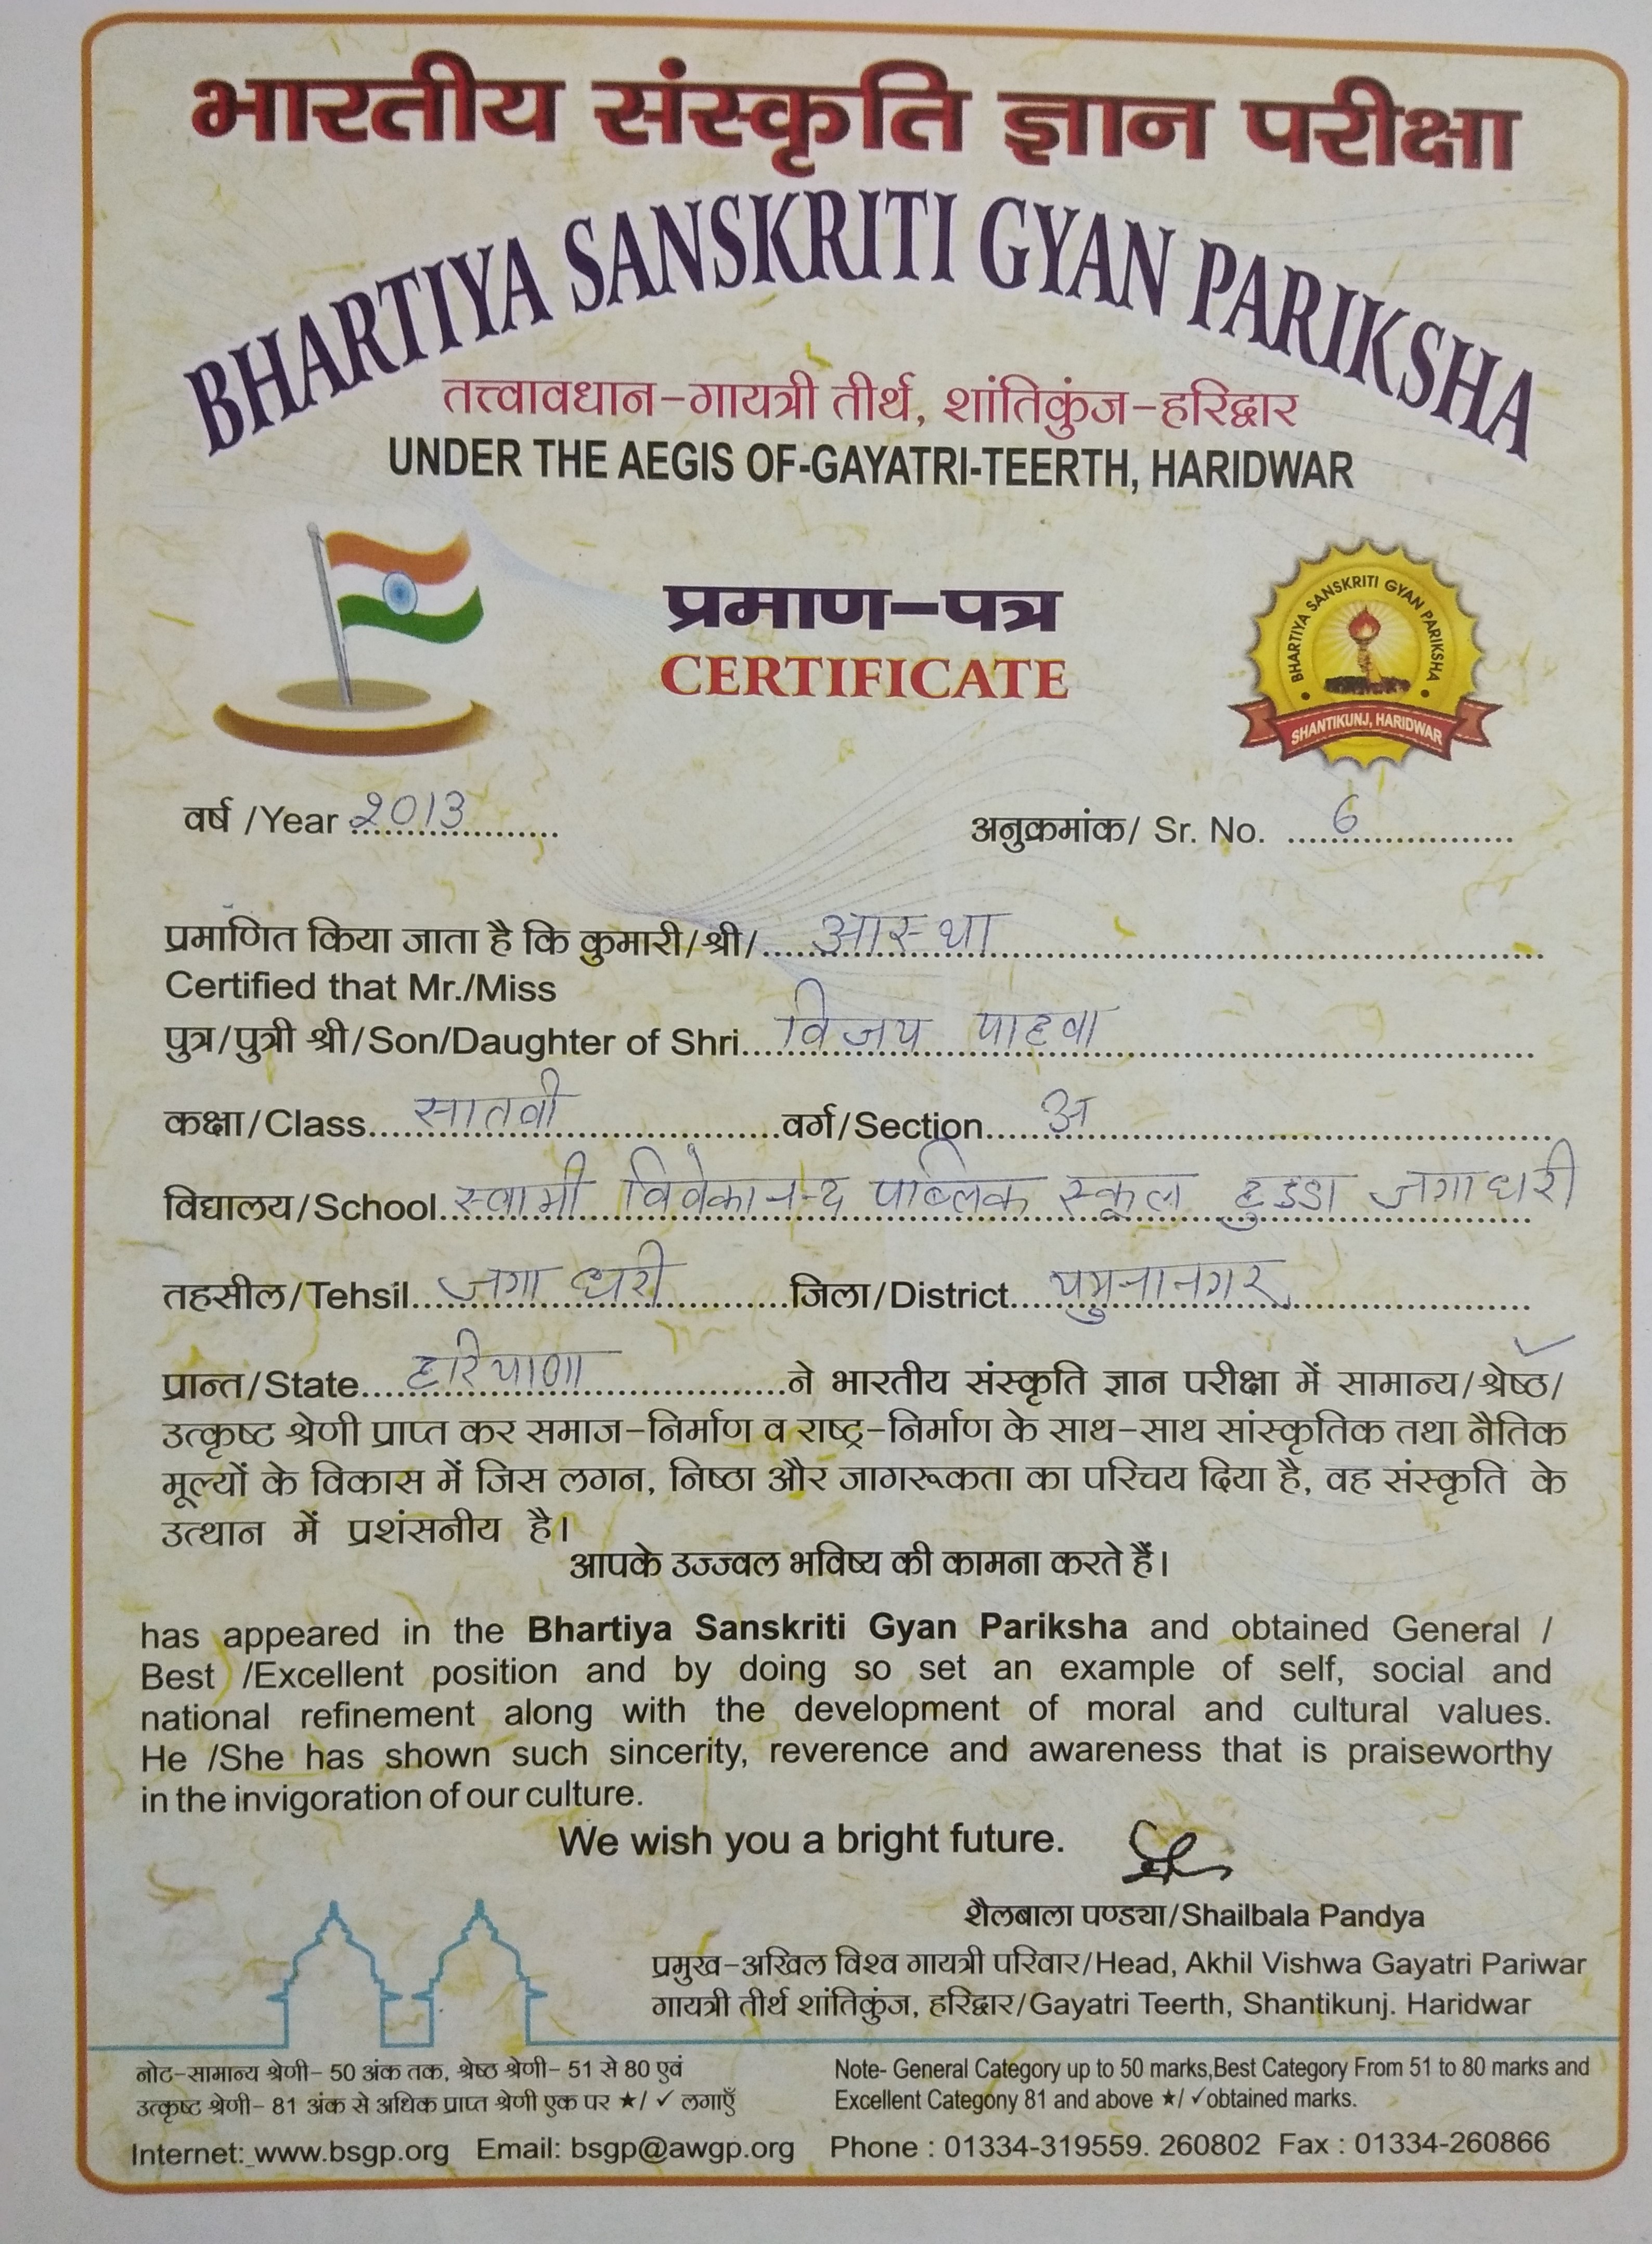 भारतीय संस्कृति ज्ञान परीक्षा
BHARTIYA SANSKRITI GYAN PARIKSHA
तत्त्वावधान-गायत्री तीर्थ, शांतिकुंज-हरिद्वार
UNDER THE AEGIS OF-GAYATRI-TEERTH, HARIDWAR
प्रमाण-पत्र
CERTIFICATE
BHARTIYA SANSKRITI GYAN PARIKSHA
SHANTIKUNJ, HARIDWAR
वर्ष /Year 2013 अनुक्रमांक/ Sr. No. 6
प्रमाणित किया जाता है कि कुमारी/श्री/ आस्था
Certified that Mr./Miss
पुत्र/पुत्री श्री/Son/Daughter of Shri विजय पाहवा
कक्षा/Class सातवी वर्ग/Section अ
विद्यालय/School स्वामी विवेकानन्द पब्लिक स्कूल हुडडा जगाधरी
तहसील/Tehsil जगाधरी जिला/District यमुनानगर
प्रान्त/State हरियाणा ने भारतीय संस्कृति ज्ञान परीक्षा में सामान्य/श्रेष्ठ/ ✓
उत्कृष्ट श्रेणी प्राप्त कर समाज-निर्माण व राष्ट्र-निर्माण के साथ-साथ सांस्कृतिक तथा नैतिक
मूल्यों के विकास में जिस लगन, निष्ठा और जागरूकता का परिचय दिया है, वह संस्कृति के
उत्थान में प्रशंसनीय है।
आपके उज्ज्वल भविष्य की कामना करते हैं।
has appeared in the Bhartiya Sanskriti Gyan Pariksha and obtained General /
Best /Excellent position and by doing so set an example of self, social and
national refinement along with the development of moral and cultural values.
He /She has shown such sincerity, reverence and awareness that is praiseworthy
in the invigoration of our culture.
We wish you a bright future.
शैलबाला पण्ड्या/Shailbala Pandya
प्रमुख-अखिल विश्व गायत्री परिवार/Head, Akhil Vishwa Gayatri Pariwar
गायत्री तीर्थ शांतिकुंज, हरिद्वार/Gayatri Teerth, Shantikunj. Haridwar
नोट-सामान्य श्रेणी- 50 अंक तक, श्रेष्ठ श्रेणी- 51 से 80 एवं
उत्कृष्ट श्रेणी- 81 अंक से अधिक प्राप्त श्रेणी एक पर ★/ ✓ लगाएँ
Note- General Category up to 50 marks,Best Category From 51 to 80 marks and
Excellent Categony 81 and above ★/ ✓obtained marks.
Internet: www.bsgp.org Email: bsgp@awgp.org Phone : 01334-319559. 260802 Fax : 01334-260866